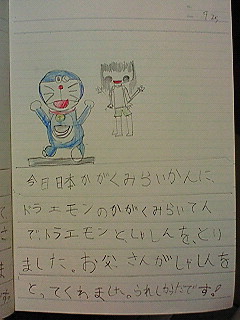 今日日本かがくみらいかんに、
ドラエモンのかがくみらいてん
で、ドラエモンと、しゃしんを、とり
ました。お父さんがしゃしんを
とってくれました。うれしかったです!